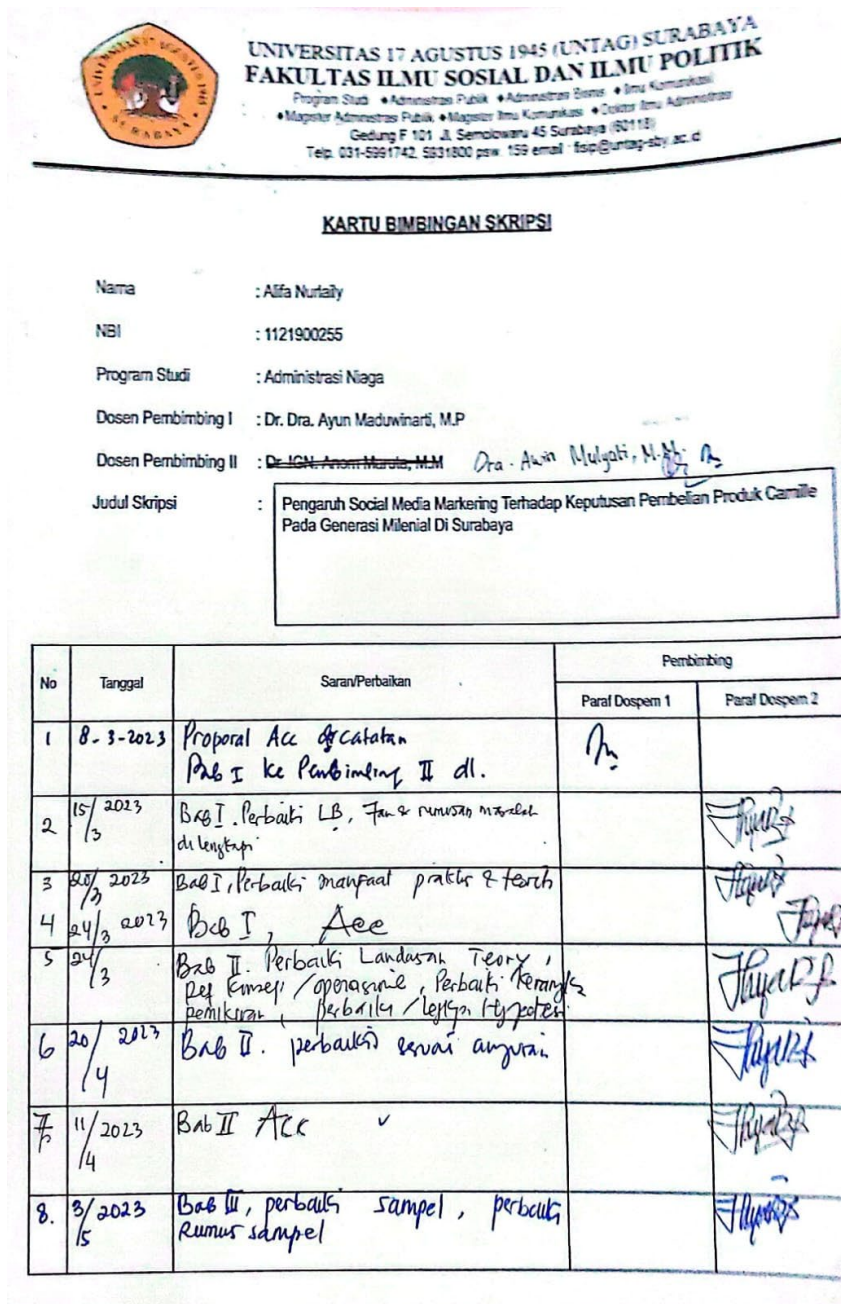 UNIVERSITAS 17 AGUSTUS 1945
SURABAYA
UNIVERSITAS 17 AGUSTUS 1945 (UNTAG) SURABAYA
FAKULTAS ILMU SOSIAL DAN ILMU POLITIK
Program Studi ♦Administrasi Publik ♦Administrasi Bisnis ♦Ilmu Komunikasi
♦Magister Administrasi Publik ♦Magister Ilmu Komunikasi ♦Doktor Ilmu Administrasi
Gedung F 101 Jl. Semolowaru 45 Surabaya (60118)
Telp. 031-5991742, 5931800 psw. 159 email : fisip@untag-sby.ac.id
KARTU BIMBINGAN SKRIPSI
Nama : Alifa Nurlaily
NBI : 1121900255
Program Studi : Administrasi Niaga
Dosen Pembimbing I : Dr. Dra. Ayun Maduwinarti, M.P
Dosen Pembimbing II : Dr. IGN. Anom Maruta, M.M Dra. Awin Mulyati, M.M.
Judul Skripsi : Pengaruh Social Media Markering Terhadap Keputusan Pembelian Produk Camille
Pada Generasi Milenial Di Surabaya
No Tanggal Saran/Perbaikan Pembimbing
Paraf Dospem 1 Paraf Dospem 2
1 8-3-2023 Proposal Acc catatan
Bab I ke Pembimbing II dl.
2 15/3 2023 Bab I. Perbaiki LB, & rumusan masalah
di lengkapi
3 20/3 2023 Bab I, Perbaiki manfaat praktis & teoritis
4 24/3 2023 Bab I, Acc
5 24/3 Bab II. Perbaiki Landasan Teory,
Def Konsep/operasional, Perbaiki Kerangka
pemikiran, Perbaiki/ Hypotesi
6 20/4 2023 Bab II. perbaiki sesuai anjuran
7 11/4 2023 Bab II Acc ✓
8. 3/5 2023 Bab III, perbaiki sampel, perbaiki
Rumus sampel